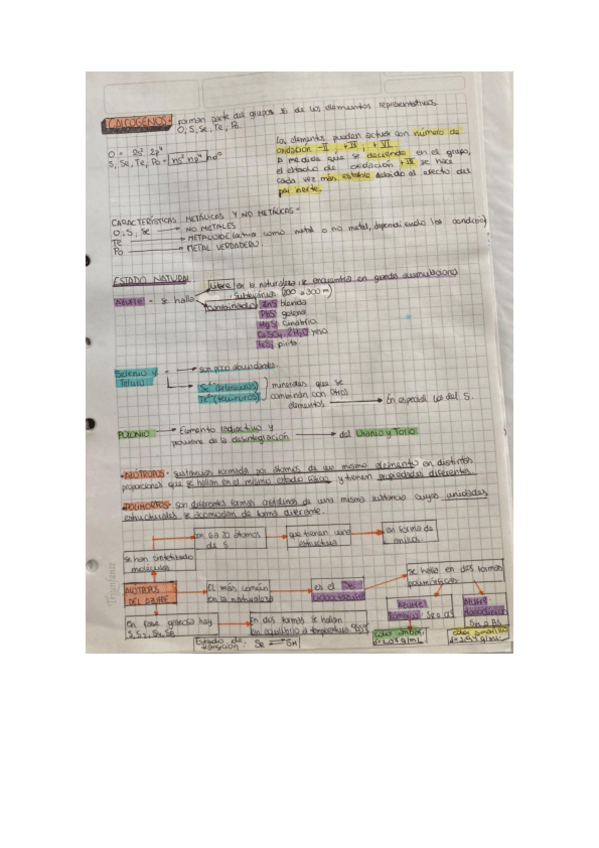 CALCOGENOS - Forman parte del grupo 16 de los elementos representativos.
O, S, Se, Te, Po
O = 2s² 2p⁴
S, Se, Te, Po = ns² np⁴ nd⁰
Los elementos pueden actuar con número de
oxidación -II, +IV, +VI.
A medida que se desciende en el grupo,
el estado de oxidación +IV se hace
cada vez más estable debido al efecto del
par inerte.
CARACTERÍSTICAS METÁLICAS Y NO METÁLICAS -
O, S, Se NO METALES
Te METALOIDE (actua como metal o no metal, dependiendo las condicio)
Po METAL VERDADERO.
ESTADO NATURAL
Azufre - se halla Libre en la naturaleza, se encuentra en grande acumulaciones
subterránea (200 a 300 m)
Combinado: ZnS blenda
PbS galena
HgS cinabrio
CaSO₄ 2H₂O yeso
FeS₂ pirita
Selenio y
Teluro
son poco abundantes.
Se²⁻ (seleniuros)
Te²⁻ (telururos)
minerales que se
combinan con otros
elementos
En especial los del S.
POLONIO Elemento radiactivo y
proviene de la desintegración
del Uranio y Torio.
ALÓTROPOS - sustancias formada por átomos de un mismo elemento en distintas
proporciones que se hallan en el mismo estado físico y tienen propiedades diferentes.
POLIMORFOS - son diferentes formas cristalinas de una misma sustancia cuyas unidades
estructurales se acomodan de forma diferente.
con 6 a 20 átomos
de S
que tienen una
estructura
en forma de
anillos.
se han sintetizado
moléculas
ALÓTROPOS
DEL AZUFRE
El más común
en la naturaleza
es el S₈
se halla en dos formas
polimórficas
Azufre
Sα o αS
color
Azufre
Sβ o βS
color amarillo
En fase gaseosa hay
En dos formas se hallan
en equilibrio a temperatura
transición: